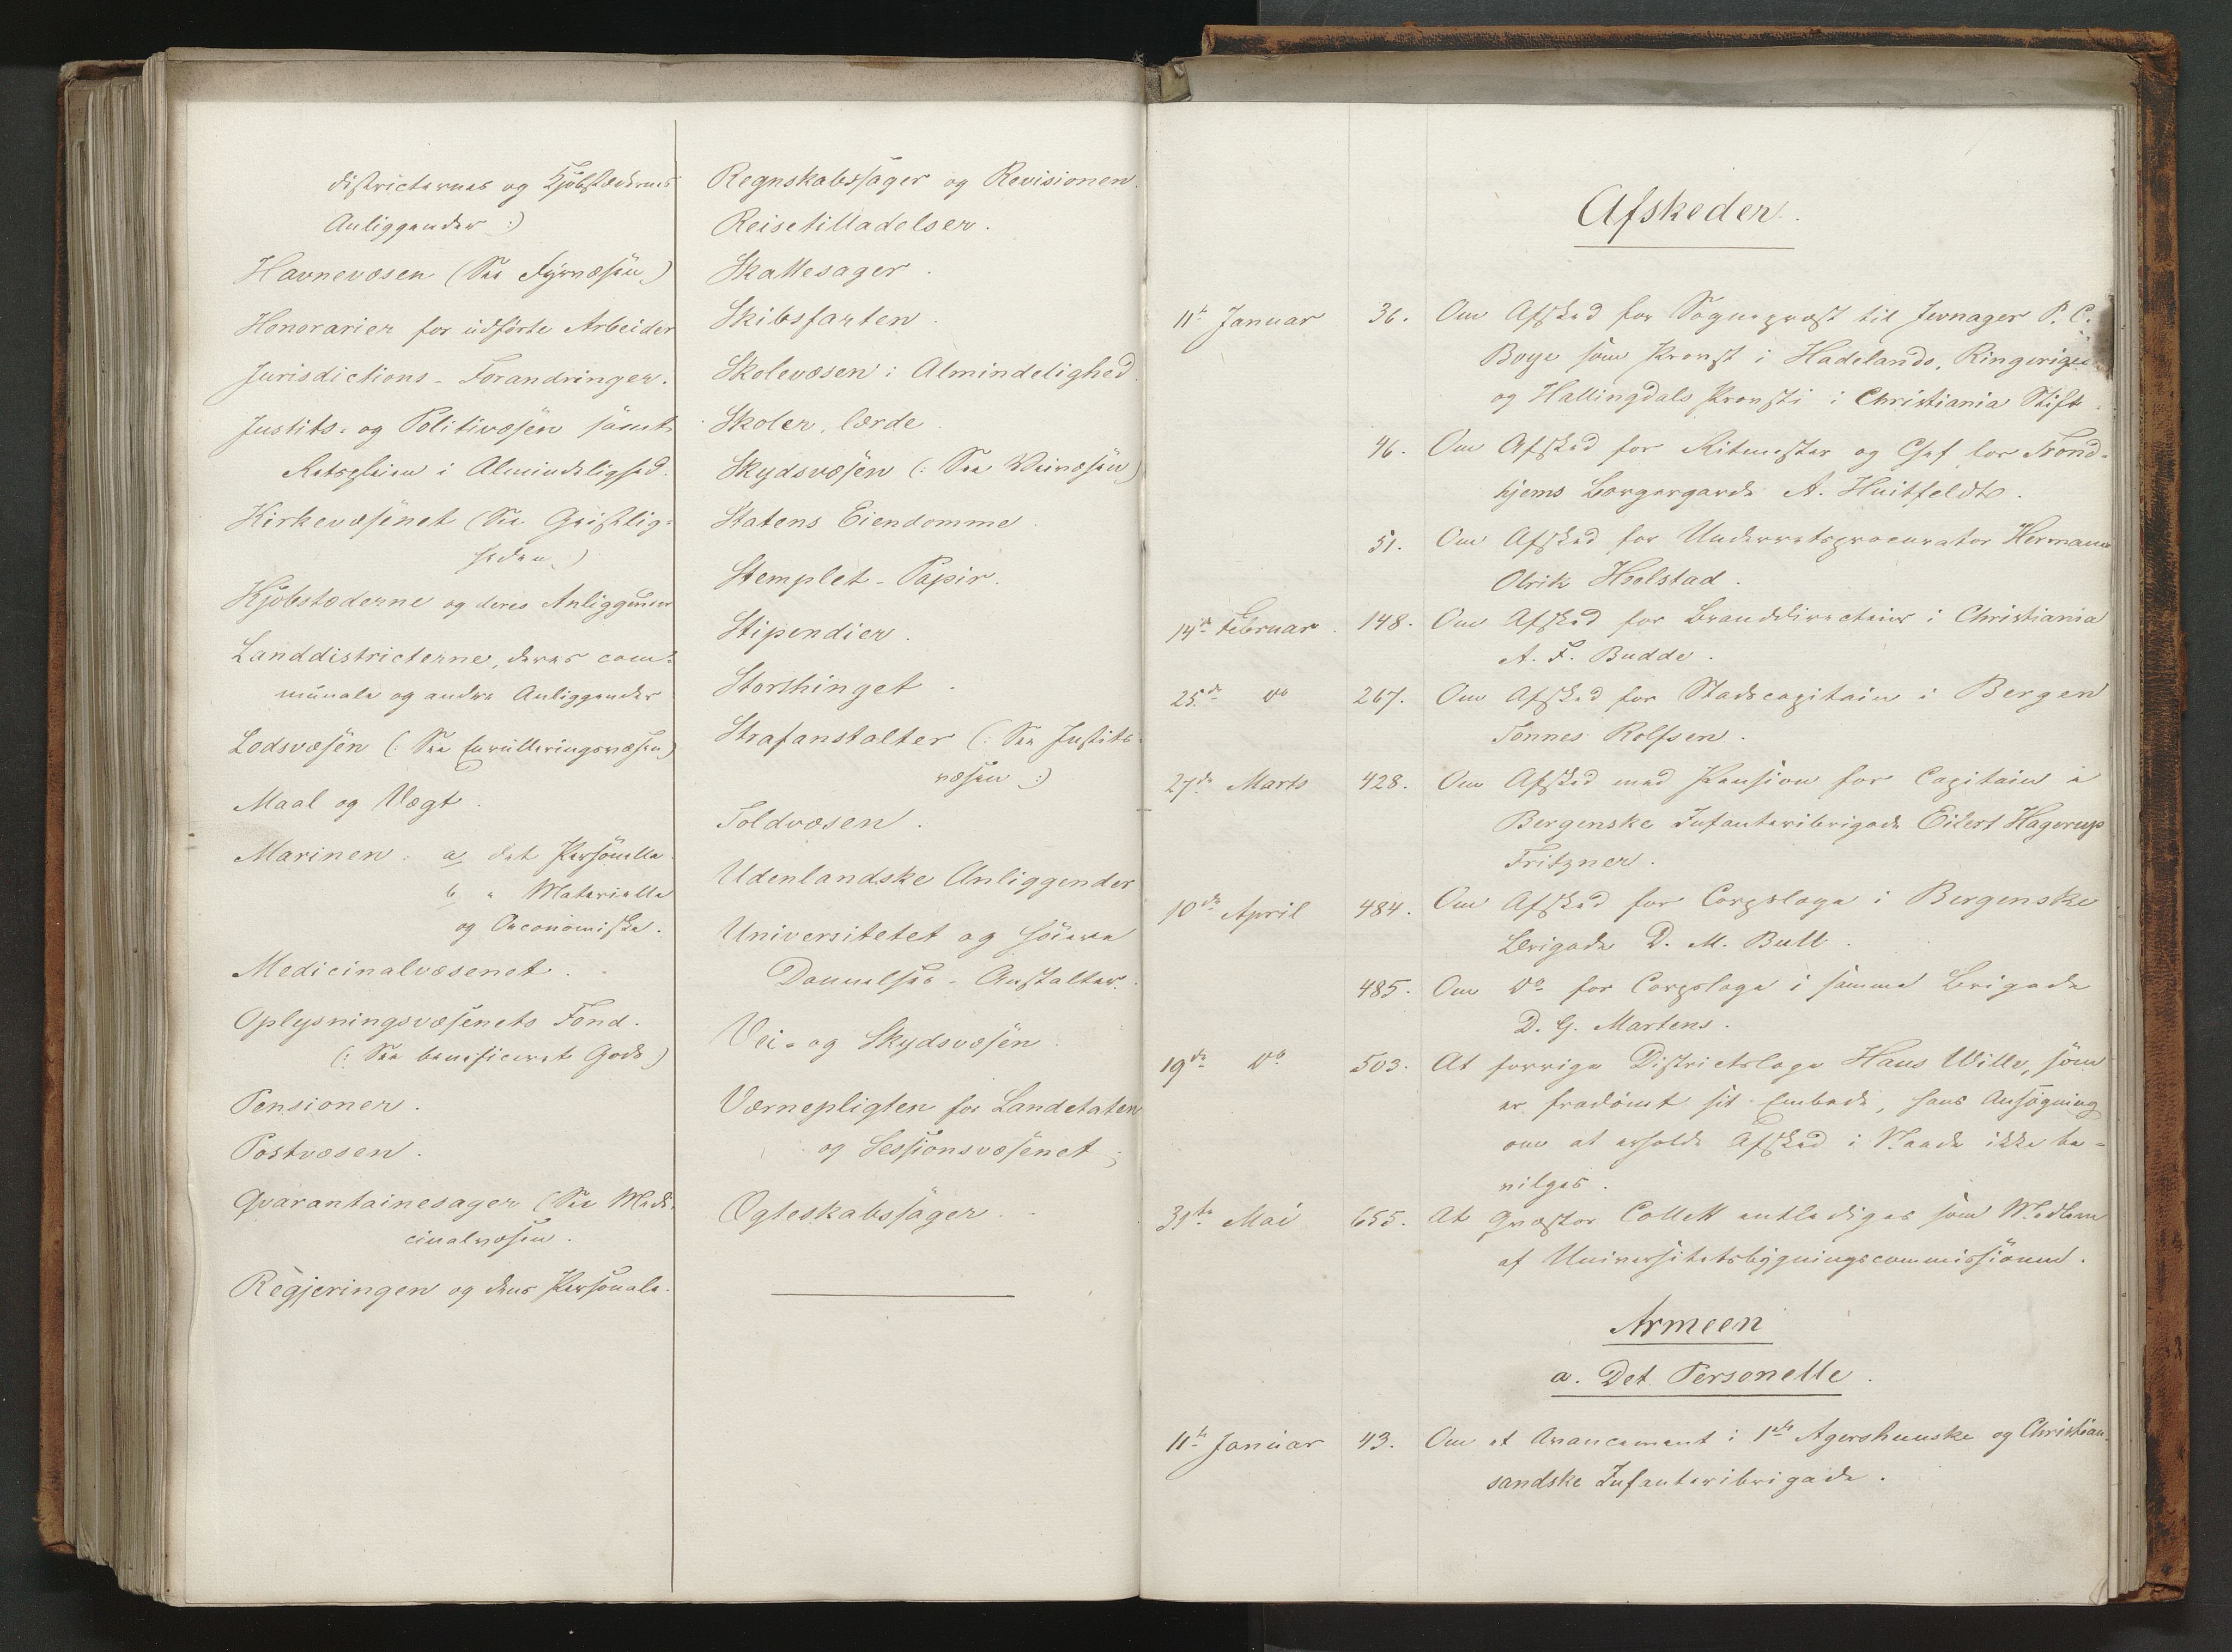 districternes og Kjøbstædernes
Anliggender :)
Havnevæsen (See Fyrvæsen)
Honorarier for udførte Arbeider
Jurisdictions-Forandringer.
Justits- og Politivæsen samt
Retspleien i Almindelighed.
Kirkevæsenet (See Geistlig-
heden)
Kjøbstæderne og deres Anliggender
Landdistricterne, deres com-
munale og andre Anliggender
Lodsvæsen (: See Enrulleringsvæsen)
Maal og Vægt.
Marinen: a, det Personelle
b, " Materielle
og Oeconomiske.
Medicinalvæsenet.
Oplysningsvæsenets Fond.
(: See beneficeret Gods)
Pensioner.
Postvæsen.
Qvarantainesager (See Medi-
cinalvæsen.
Regjeringen og dens Personale.
Regnskabssager og Revisionen.
Reisetilladelser.
Skattesager.
Skibsfarten.
Skolevæsen i Almindelighed.
Skoler, lærde
Skydsvæsen (: See Veivæsen)
Statens Eiendomme.
Stemplet-Papir.
Stipendier.
Storthinget.
Strafanstalter (: See Justits-
væsen :)
Toldvæsen.
Udenlandske Anliggender
Universitetet og höiere
Dannelses-Anstalter.
Vei- og Skydsvæsen.
Værnepligten for Landetaten
og Sessionsvæsenet;
Ægteskabssager.
Afskeder.
11te Januar 36. Om Afsked for Sognepræst til Jevnager P. C.
Boye som Provst i Hadelands, Ringeriges
og Hallingdals Provsti i Christiania Stift.
46. Om Afsked for Ritmester og Chef for Trond-
hjems Borgergarde A. Huitfeldt.
51. Om Afsked for Underretsprocurator Hermann
Olrik Heelstad.
14de Februar. 148. Om Afsked for Branddirecteur i Christiania
A. F. Budde.
25de do 267. Om Afsked for Stadscapitain i Bergen
Tønnes Rolfsen.
27de Marts 428. Om Afsked med Pension for Capitain i
Bergenske Infanteribrigade Eilert Hagerup
Fritzner.
10de April 484. Om Afsked for Corpslæge i Bergenske
Brigade D. M. Bull.
485. Om do for Corpslæge i samme Brigade
D. G. Martens.
19de do 503. At forrige Districtslæge Hans Wille, som
er fradømt sit Embede, hans Ansøgning
om at erholde Afsked i Naade ikke be-
vilges.
31te Mai 655. At Qvæstor Collett entlediges som Medlem
af Universitetsbygningscommissionen.
Armeen
a. Det Personelle.
11te Januar 43. Om et Avancement i 1ste Agershuuske og Christian-
sandske Infanteribrigade.